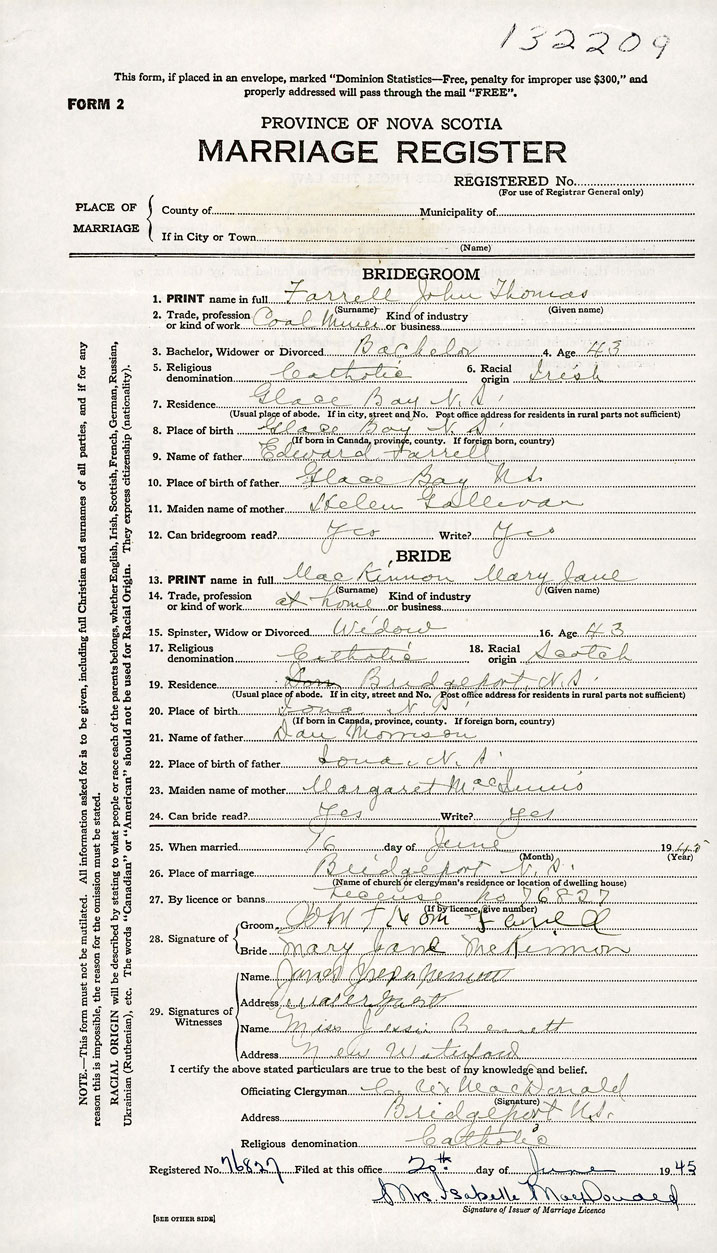 132209
This form, if placed in an envelope, marked "Dominion Statistics—Free, penalty for improper use $300," and
properly addressed will pass through the mail "FREE".
FORM 2
PROVINCE OF NOVA SCOTIA
MARRIAGE REGISTER
REGISTERED No.
(For use of Registrar General only)
PLACE OF MARRIAGE
County of Municipality of
If in City or Town
(Name)
BRIDEGROOM
1. PRINT name in full Farrell John Thomas
(Surname) (Given name)
2. Trade, profession or kind of work Coal Miner Kind of industry or business
3. Bachelor, Widower or Divorced Bachelor 4. Age 43
5. Religious denomination Catholic 6. Racial origin Irish
7. Residence Glace Bay N.S.
(Usual place of abode. If in city, street and No. Post office address for residents in rural parts not sufficient)
8. Place of birth Glace Bay N.S.
(If born in Canada, province, county. If foreign born, country)
9. Name of father Edward Farrell
10. Place of birth of father Glace Bay N.S.
11. Maiden name of mother Helen Gallivan
12. Can bridegroom read? Yes Write? Yes
BRIDE
13. PRINT name in full MacKinnon Mary Jane
(Surname) (Given name)
14. Trade, profession or kind of work at home Kind of industry or business
15. Spinster, Widow or Divorced Widow 16. Age 43
17. Religious denomination Catholic 18. Racial origin Scotch
19. Residence Bridgeport, N.S.
(Usual place of abode. If in city, street and No. Post office address for residents in rural parts not sufficient)
20. Place of birth Iona N.S.
(If born in Canada, province, county. If foreign born, country)
21. Name of father Dan Morrison
22. Place of birth of father Iona N.S.
23. Maiden name of mother Margaret MacInnis
24. Can bride read? Yes Write? Yes
25. When married 16 day of June 1945
(Month) (Year)
26. Place of marriage Bridgeport N.S.
(Name of church or clergyman's residence or location of dwelling house)
27. By licence or banns License No 76827
(If by licence, give number)
28. Signature of
Groom John Thom Farrell
Bride Mary Jane McKinnon
29. Signatures of Witnesses
Name James
Address
Name Miss Jessie Bennett
Address New Waterford
I certify the above stated particulars are true to the best of my knowledge and belief.
Officiating Clergyman MacDonald
(Signature)
Address Bridgeport N.S.
Religious denomination Catholic
Registered No. 76827 Filed at this office 20th day of June 1945
Mrs. Isabelle MacDonald
Signature of Issuer of Marriage Licence
[SEE OTHER SIDE]
NOTE.—This form must not be mutilated. All information asked for is to be given, including full Christian and surnames of all parties, and if for any
reason this is impossible, the reason for the omission must be stated.
RACIAL ORIGIN will be described by stating to what people or race each of the parents belongs, whether English, Irish, Scottish, French, German, Russian,
Ukrainian (Ruthenian), etc. The words "Canadian" or "American" should not be used for Racial Origin. They express citizenship (nationality).